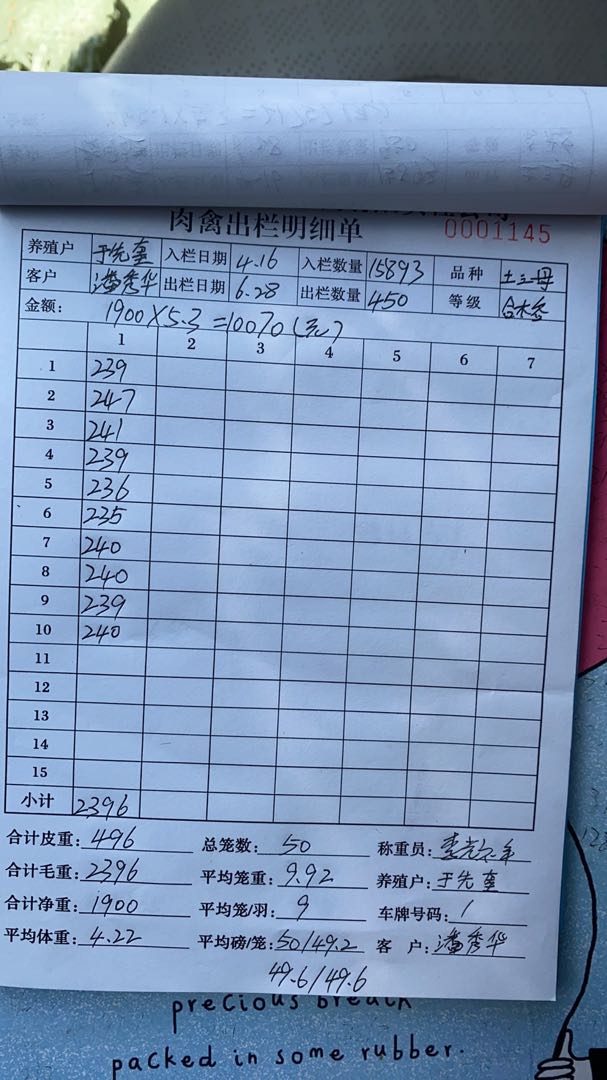 肉禽出栏明细单 0001145
养殖户 于先奎 入栏日期 4.16 入栏数量 15893 品种 土三母
客户 潘秀华 出栏日期 6.28 出栏数量 450 等级
金额: 1900×5.3=10070(元)
1 2 3 4 5 6 7
1 239
2 247
3 241
4 239
5 236
6 235
7 240
8 240
9 239
10 240
11
12
13
14
15
小计 2396
合计皮重: 496 总笼数: 50 称重员:
合计毛重: 2396 平均笼重: 9.92 养殖户: 于先奎
合计净重: 1900 平均笼/羽: 9 车牌号码: /
平均体重: 4.22 平均磅/笼: 50/49.2 客 户: 潘秀华
49.6/49.6
precious breath
packed in some rubber.